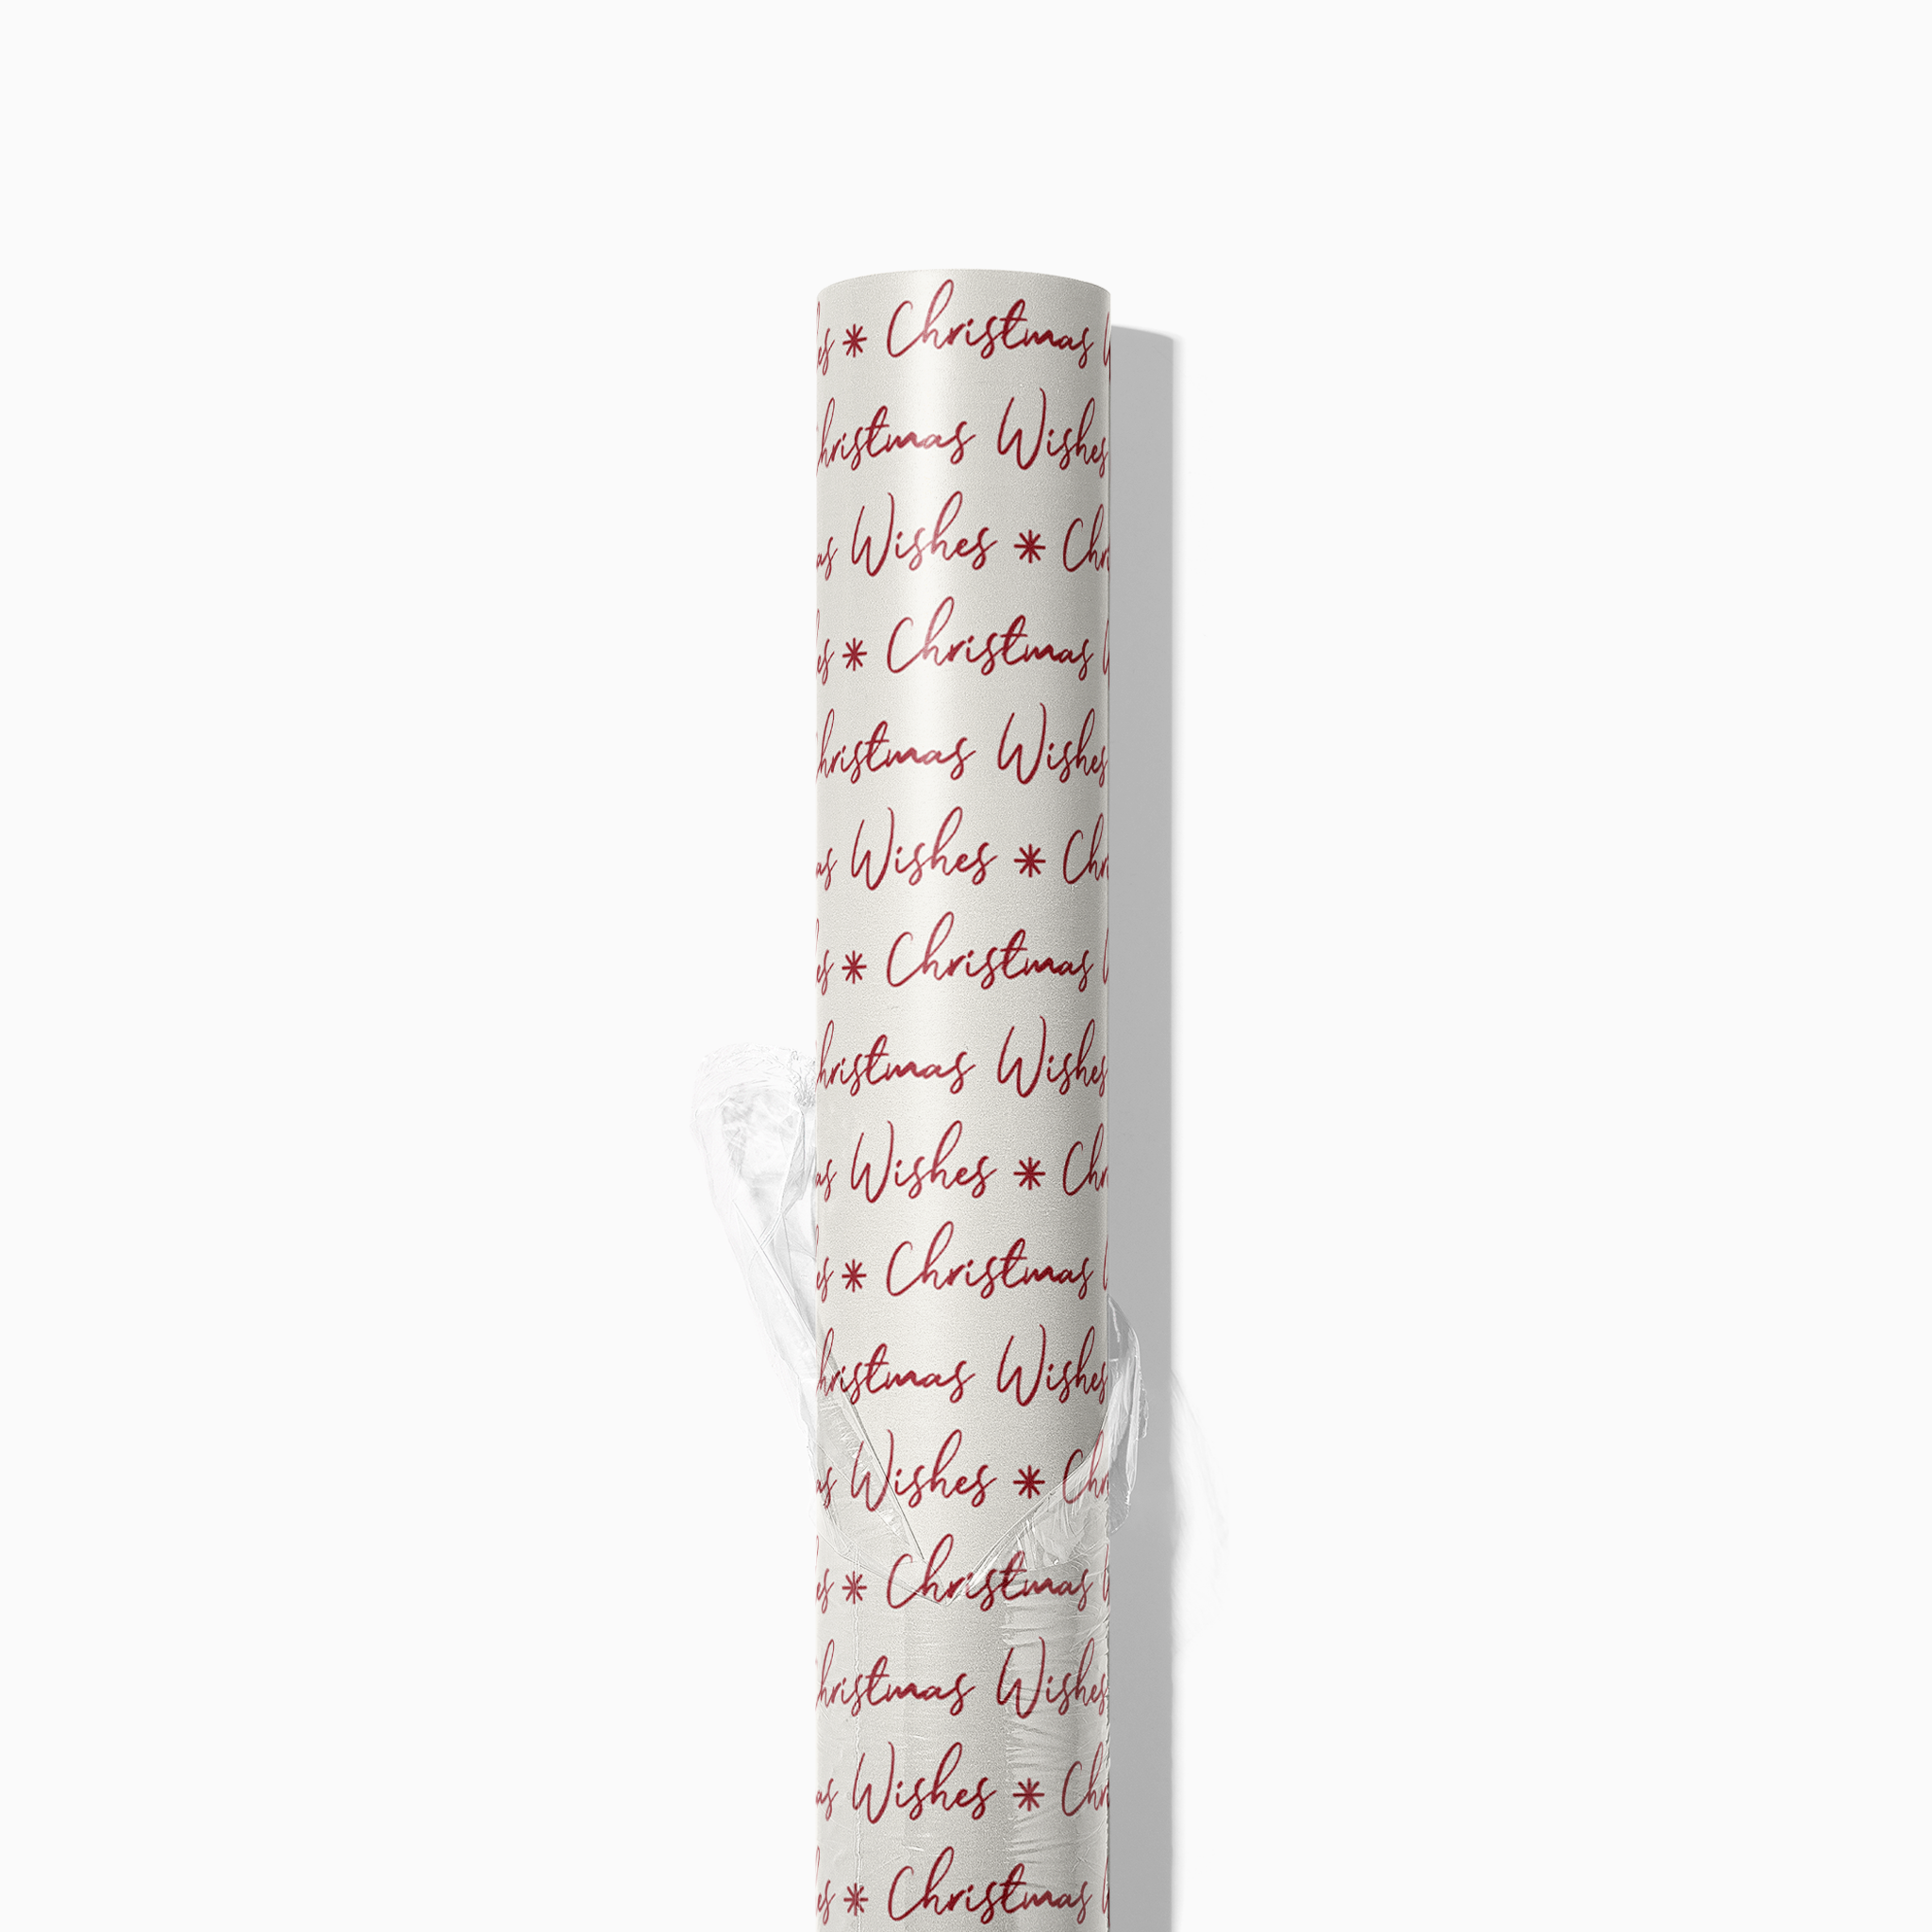 es * Christmas
Christmas Wishes
as Wishes * Chr
es * Christmas
Christmas Wishes
as Wishes * Chr
es * Christmas
Christmas Wishes
as Wishes * Chr
es * Christmas
Christmas Wishes
as Wishes * Chr
es * Christmas
Christmas Wishes
as Wishes * Chr
es * Christmas